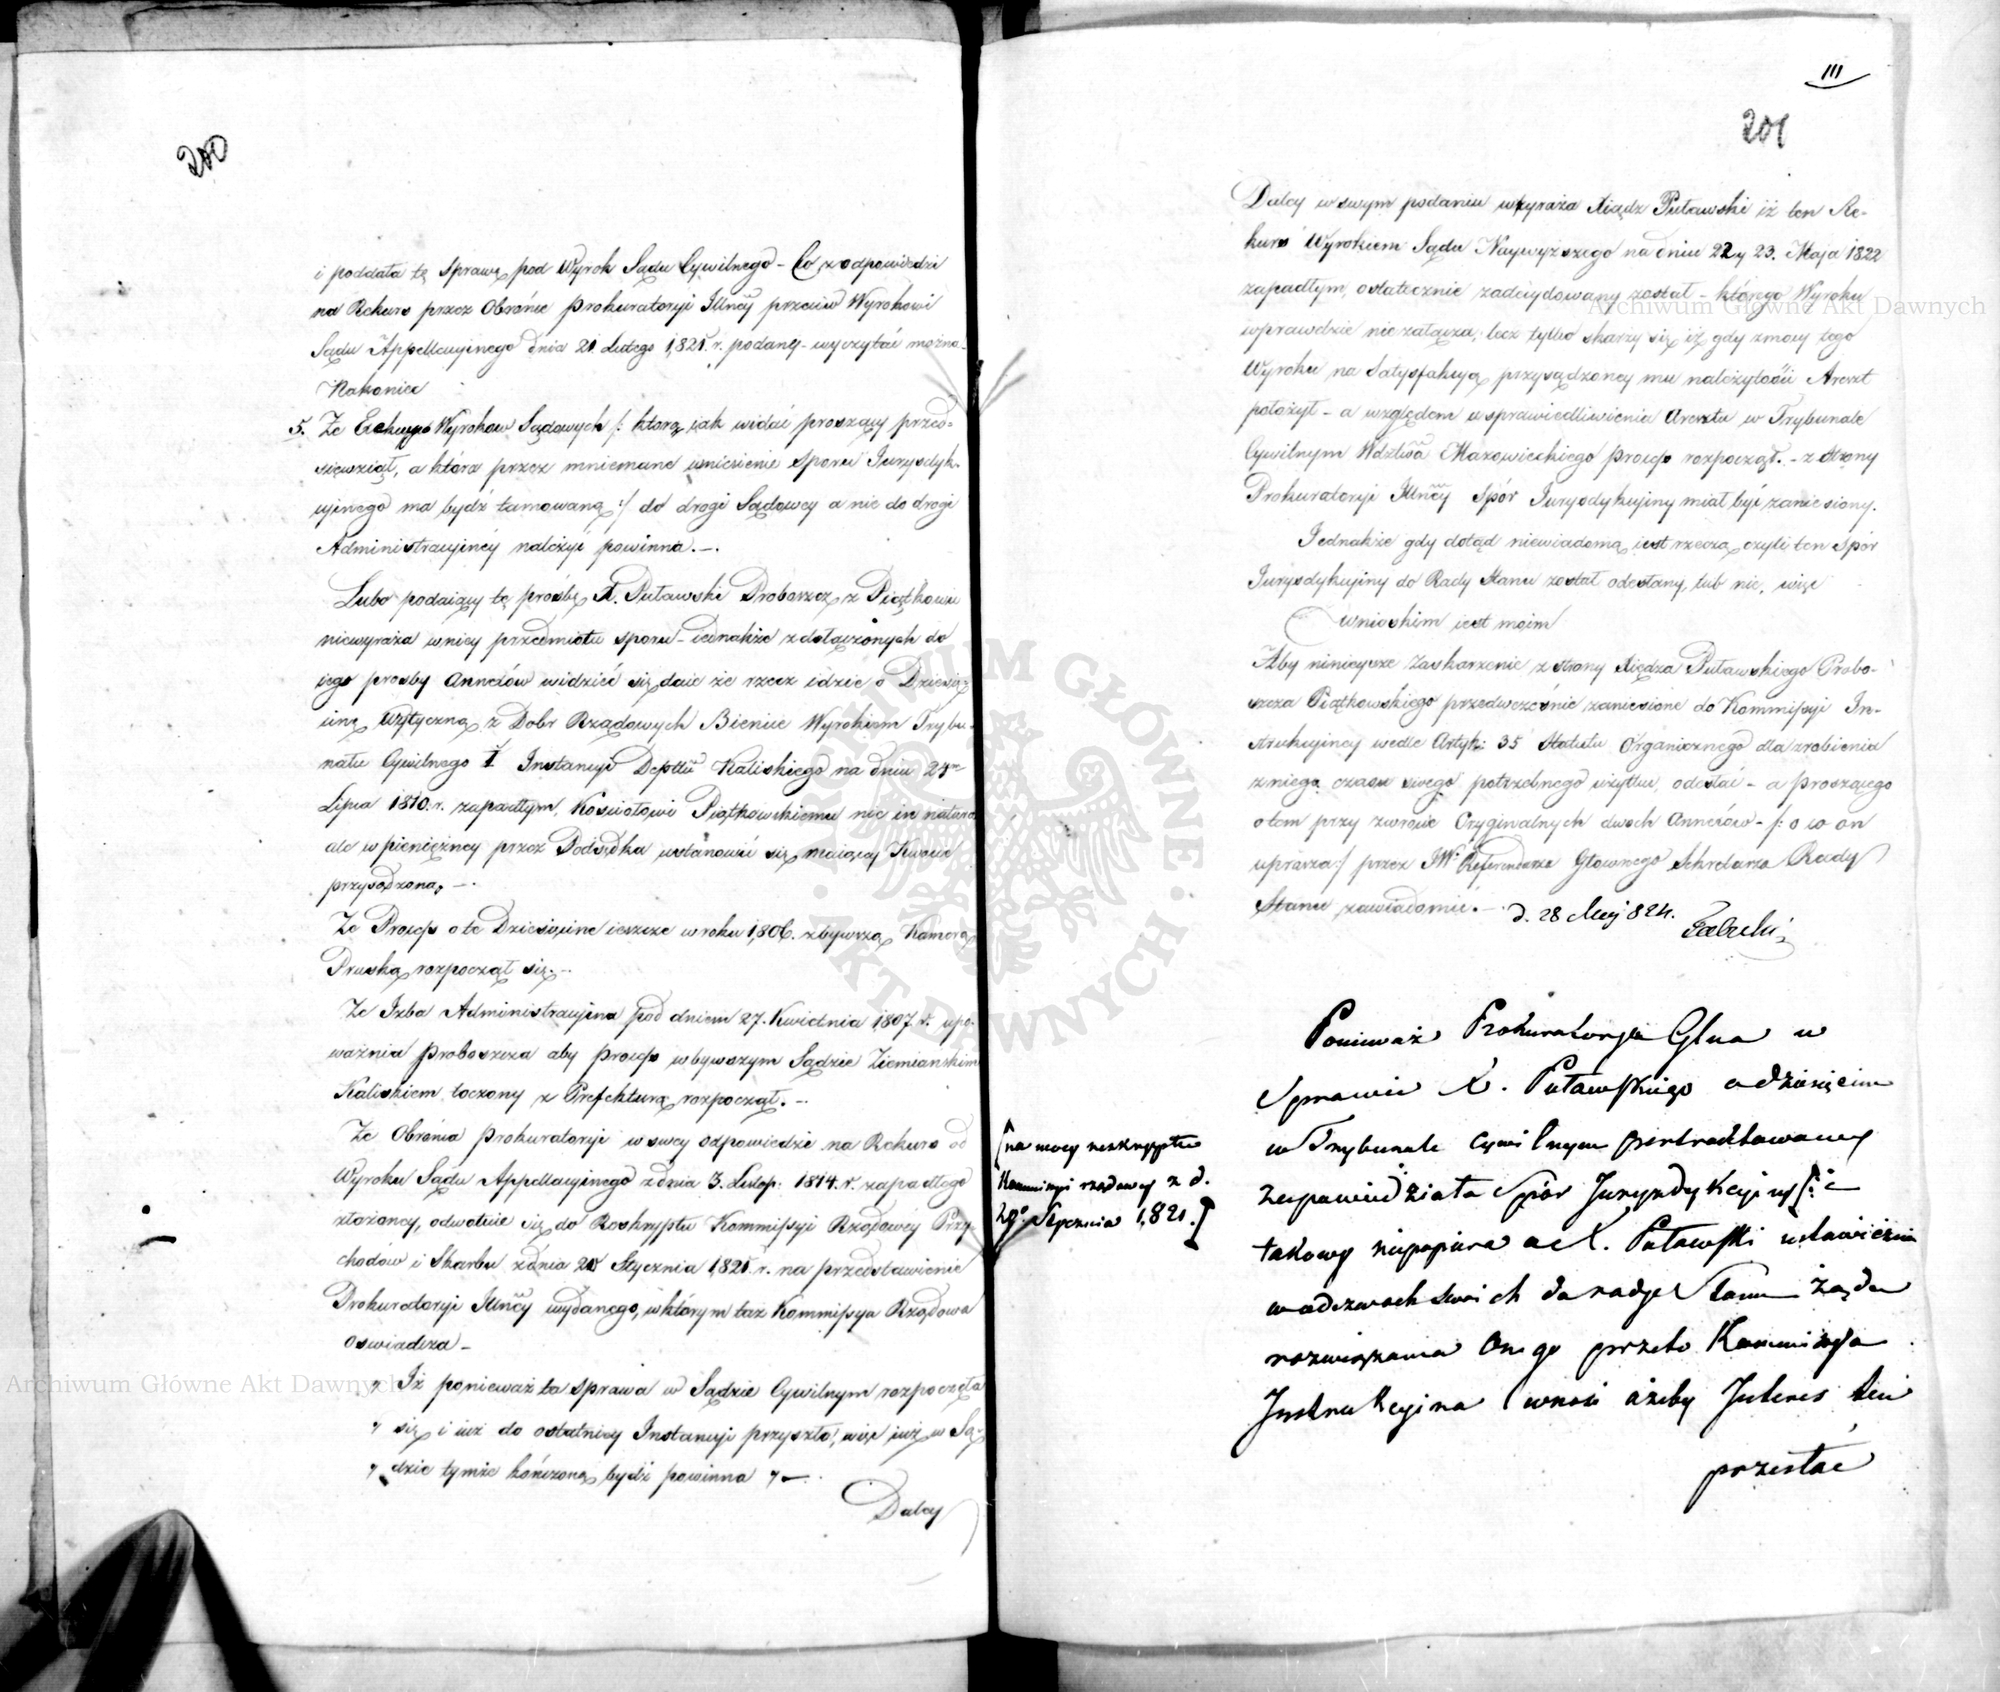 200
i poddała tę sprawę pod Wyrok Sądu Cywilnego – Co z odpowiedzi
na Rekurs przez Obrońcę Prokuratoryi Jllnéy przeciw Wyrokowi
Sądu Appellacyinego dnia 21 Lutego 1,821. r. podanéy – wyczytać można.
Nakoniec
5. Że Exekucya Wyroków Sądowych /: którą iak widać proszący przed-
sięwziął, a która przez mniemane wniesienie Sporu Jurysdyk-
cyinego ma bydź tamowaną :/ do drogi Sądowey a nie do drogi
Administracyiney należyć powinna. –.
Lubo podaiący tę prośbę X. Puławski Proboszcz z Piątkowa
niewyraża w niey przedmiotu sporu – iednakże z dołączonych do
iego prośby Annexów widzieć się daie że rzecz idzie o Dziesię-
cinę wytyczną z Dobr Rządowych Bienice Wyrokiem Trybu-
nału Cywilnego I Instancyi Depttu Kaliskiego na dniu 24m
Lipca 1810. r. zapadłym, Kościołowi Piątkowskiemu nie in natura
ale w pieniężney przez Dodsędka ustanowić się maiącey Kwocie
przysądzoną. –.
Że Process o te Dziesięcine ieszcze w roku 1,806. z bywszą Kamerą
Pruską rozpoczął się. –
Że Izba Administracyina pod dniem 27. Kwietnia 1807. r. upo-
ważnia Proboszcza aby process w bywszym Sądzie Ziemiańskim
Kaliskiem toczony z Prefekturą rozpoczął. –
Że Obrońca Prokuratoryi w swey odpowiedzi na Rekurs od
Wyroku Sądu Appellacyinego z dnia 3. Listop: 1814. r. zapadłego
złożoney, odwołuie się do Reskryptu Kommissyi Rządowéy Przy-
chodów i Skarbu z dnia 20 Stycznia 1,821. r. na przedstawienie
Prokuratoryi Jllnéy wydanego, w którym taż Kommissya Rządowa
oświadcza –
„ Iż ponieważ ta sprawa w Sądzie Cywilnym rozpoczęła
„ się i iuż do ostatniey Instancyi przyszło, więc iuż w Są-
„ dzie tymże kończoną bydź powinna „ –
Daley
III
201
Daley w swym podaniu wyraża Xiądz Puławski iż ten Re-
kurs Wyrokiem Sądu Naywyższego na dniu 22 y 23. Maja 1822
zapadłym, ostatecznie zadecydowany został – którego Wyroku
wprawdzie nie załącza; lecz tylko skarży się iż gdy z mocy tego
Wyroku na Satysfakcyą przysądzoney mu należytości Areszt
położył – a względem usprawiedliwienia Aresztu w Trybunale
Cywilnym Wdztwa Mazowieckiego process rozpoczął. – z strony
Prokuratoryi Jllnéy Spór Jurysdykcyiny miał być zaniesiony.
Jednakże gdy dotąd niewiadomą iest rzeczą czyli ten Spór
Jurysdykcyiny do Rady Stanu został odesłany, lub nie, więc
wnioskim iest moim
Ażby ninieysze zaskarżenie z strony Xiędza Puławskiego Probo-
szcza Piątkowskiego przedwcześnie zaniesione do Kommissyi In-
strukcyiney wedle Artyk: 35 Statutu Organicznego dla zrobienia
z niego czasu swego potrzebnego użytku, odesłać – a proszącego
o tem przy zwrocie Oryginalnych dwoch Annexów – /: o co on
uprasza :/ przez JW. Referendarza Głownego Sekretarza Rady
Stanu zawiadomić. – d. 28 Maj 824.
Ponieważ Prokuratorya Glna w
Sprawie X. Puławskiego o dziesięcinę
w Trybunale cywilnym pertraktowaney
zapowiedziała Spór Jurysdykcyiny [i
takowy niepopiera a X. Puławski ustawicznie
w odezwach swoich do rady Stanu żąda
rozwiązania Onego przeto Kommissya
Instrukcyina wnosi ażeby Interes ten
przesłać
[na mocy reskryptu
Kommissyi rządowey z d.
29o Stycznia 1,821.]
Archiwum Główne Akt Dawnych
Archiwum Główne Akt Dawnych
ARCHIWUM GŁÓWNE · AKT DAWNYCH ·